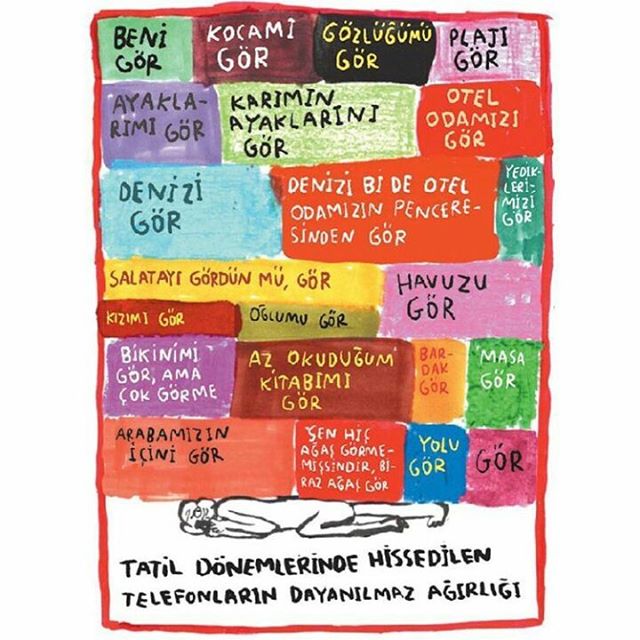 BENİ
GÖR
KOCAMI
GÖR
GÖZLÜĞÜMÜ
GÖR
PLAJI
GÖR
AYAKLA-
RIMI GÖR
KARIMIN
AYAKLARINI
GÖR
OTEL
ODAMIZI
GÖR
DENİZİ
GÖR
DENİZİ Bİ DE OTEL
ODAMIZIN PENCERE-
SİNDEN GÖR
YEDİK-
LERİ-
MİZİ
GÖR
SALATAYI GÖRDÜN MÜ, GÖR
HAVUZU
GÖR
KIZIMI GÖR
OĞLUMU GÖR
BİKİNİMİ
GÖR, AMA
ÇOK GÖRME
AZ OKUDUĞUM
KİTABIMI
GÖR
BAR-
DAK
GÖR
MASA
GÖR
ARABAMIZIN
İÇİNİ GÖR
SEN HİÇ
AĞAÇ GÖRME-
MİŞSİNDİR, Bİ-
RAZ AĞAÇ GÖR
YOLU
GÖR
GÖR
TATİL DÖNEMLERİNDE HİSSEDİLEN
TELEFONLARIN DAYANILMAZ AĞIRLIĞI